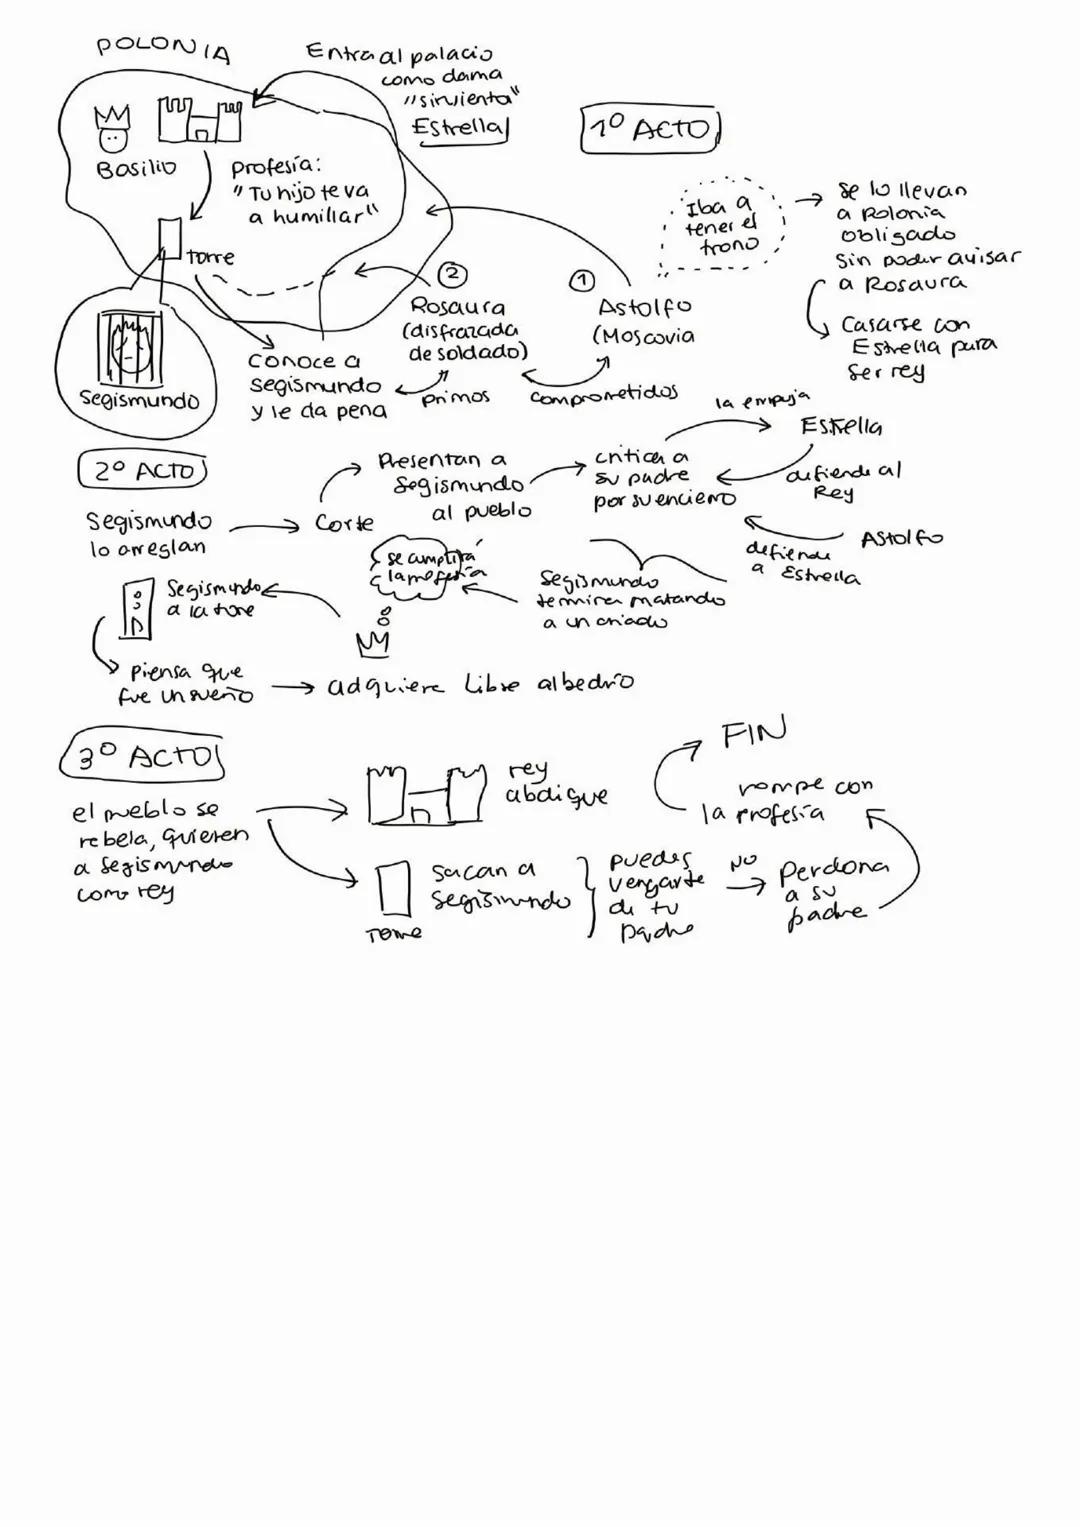 POLONIA
Entra al palacio
como dama
"sirvienta"
Estrella
Basilio
Profesía:
"Tu hijo te va
a humillar"
torre
Segismundo
Conoce a
Segismundo
y le da pena
2
Rosaura
(disfrazada
de soldado)
primos
1
Astolfo
(Moscovia
comprometidos
1º ACTO
Iba a
tener el
trono
Se lo llevan
a Polonia
obligado
sin poder avisar
a Rosaura
Casarse con
Estrella para
ser rey
2º ACTO
Segismundo
lo arreglan
Corte
Presentan a
Segismundo
al pueblo
critica a
su padre
por su encierro
la empuja
Estrella
defiende al
Rey
Astolfo
defiende
a Estrella
Segismundo
termina matando
a un criado
se cumplirá
la profesía
Segismundo
a la torre
Piensa que
fue un sueño
adquiere Libre albedrío
3º ACTO
el pueblo se
rebela, quieren
a Segismundo
como rey
rey
abdique
Torre
sacan a
Segismundo
puedes
vengarte
de tu
padre
NO
Perdona
a su
padre
rompe con
la profesía
FIN